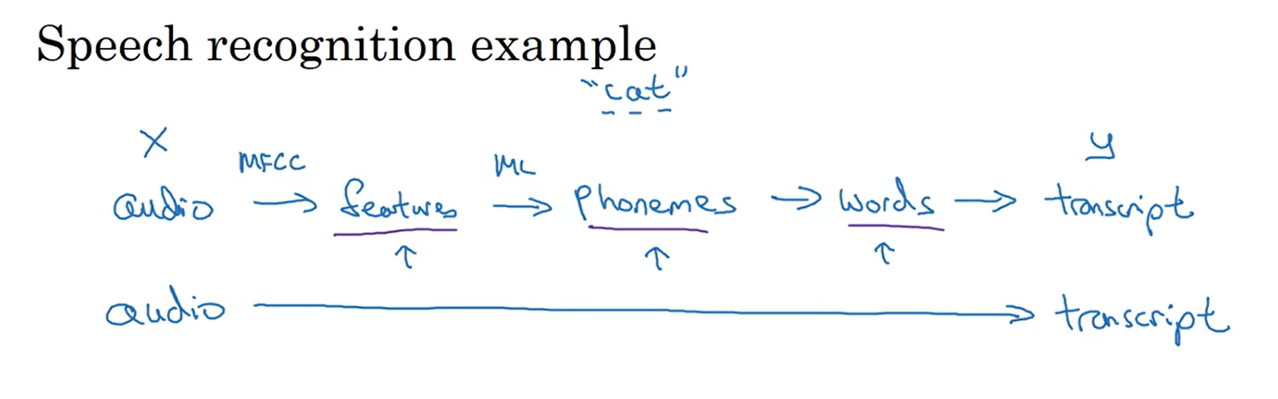 Speech recognition example
"cat"
X y
MFCC ML
audio → features → phonemes → words → transcript
audio → transcript